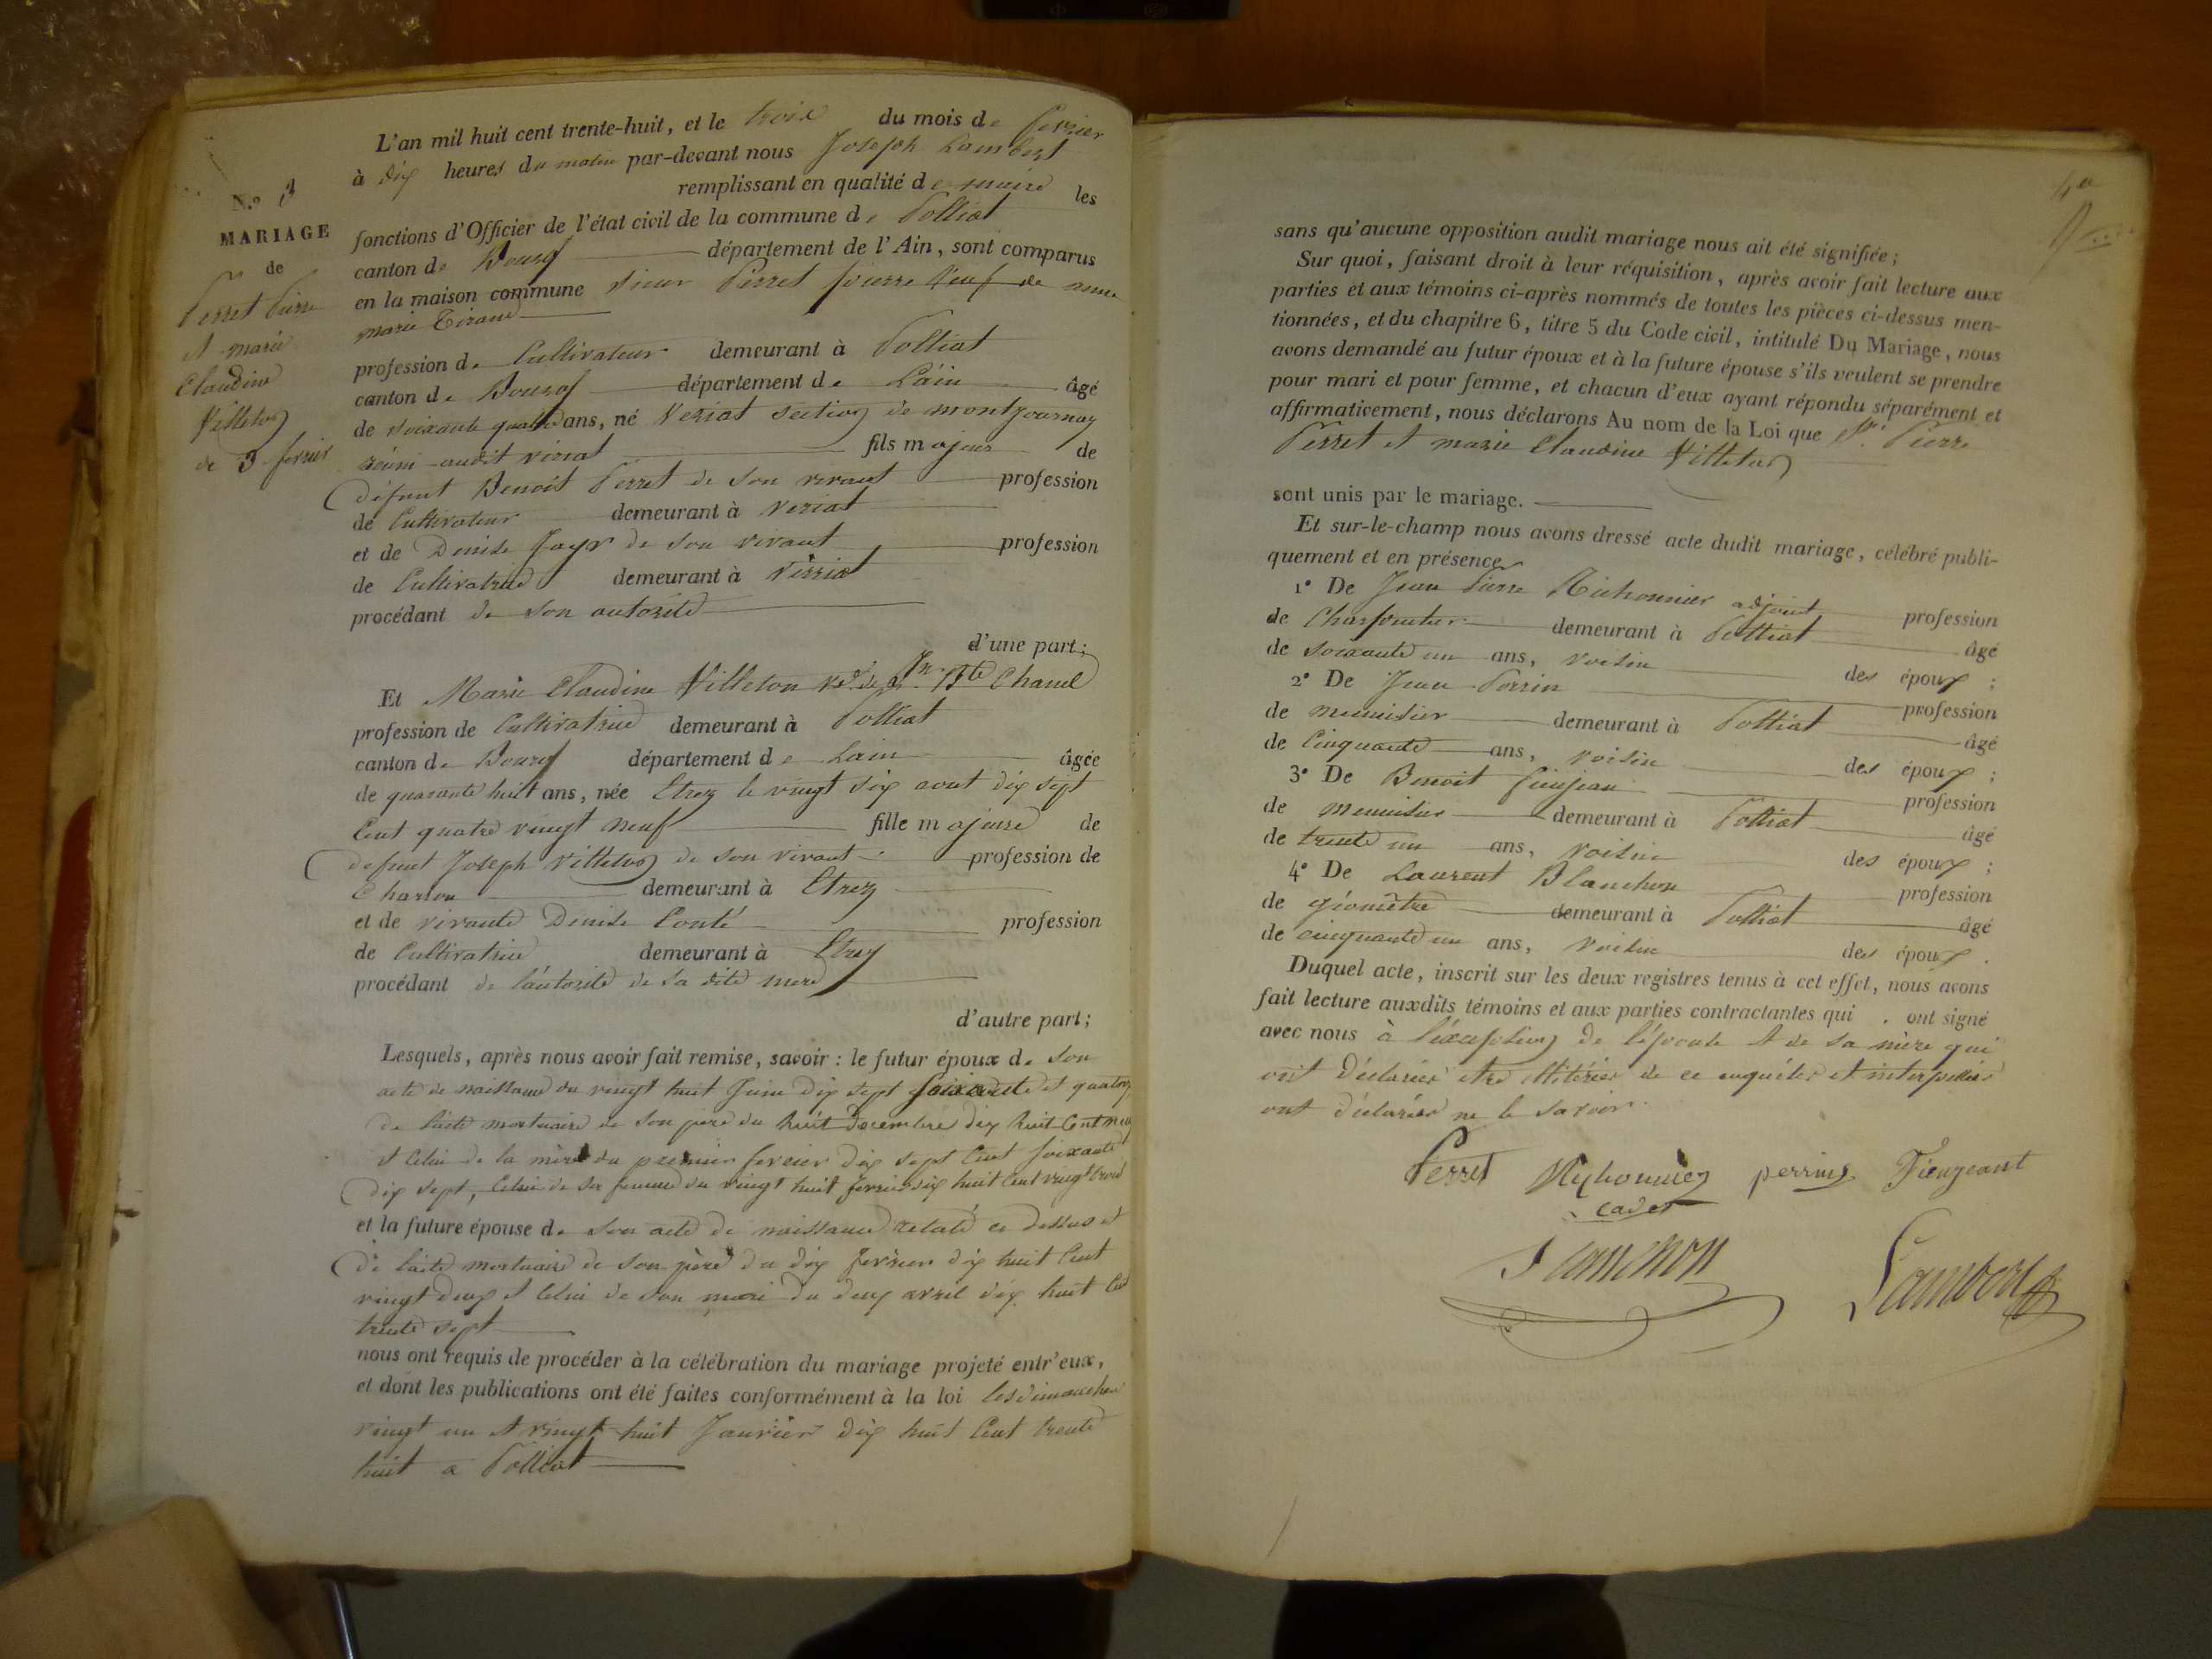 N.º
MARIAGE
de
Perret Pierre
et marie
Claudine
Villeton
du 3 fevrier
L'an mil huit cent trente-huit, et le trois du mois de fevrier
à dix heures du matin par-devant nous Joseph Lambert
remplissant en qualité de maire les
fonctions d'Officier de l'état civil de la commune de Polliat
canton de Bourg département de l'Ain, sont comparus
en la maison commune sieur Perret pierre veuf de anne
marie Tirand
profession de Cultivateur demeurant à Polliat
canton de Bourg département de Lain âgé
de soixante quatre ans, né Veriat section de montjournay
réuni audit viriat fils majeur de
défunt Benoit Perret de son vivant profession
de Cultivateur demeurant à Veriat
et de Denise Jayr de son vivant profession
de Cultivatrice demeurant à Virriat
procédant de son autorité
d'une part;
Et Marie Claudine Villeton Ve. de Jn. Bte Chanel
profession de Cultivatrice demeurant à Polliat
canton de Bourg département de Lain âgée
de quarante huit ans, née Etrez le vingt six aout dix sept
Cent quatre vingt neuf fille majeure de
defunt Joseph Villeton de son vivant profession de
Charron demeurant à Etrez
et de vivante Denise Conté profession
de Cultivatrice demeurant à Etrez
procédant de l'autorité de sa dite mere
d'autre part;
Lesquels, après nous avoir fait remise, savoir : le futur époux de son
acte de naissance du vingt huit Juin dix sept soixante et quatorze
de lacte mortuaire de son père du huit Decembre dix huit Cent neuf
et Celui de la mère du premier fevrier dix sept Cent soixante
dix sept, Celui de sa femme du vingt huit fevrier dix huit Cent vingt trois
et la future épouse de son acte de naissance relaté ci dessus et
de lacte mortuaire de son père du dix fevrier dix huit Cent
vingt deux et Celui de son mari du deux avril dix huit Cent
trente sept
nous ont requis de procéder à la célébration du mariage projeté entr'eux,
et dont les publications ont été faites conformément à la loi les dimanches
vingt un et vingt huit Janvier dix huit Cent trente
huit a Polliat
sans qu'aucune opposition audit mariage nous ait été signifiée;
Sur quoi, faisant droit à leur réquisition, après avoir fait lecture aux
parties et aux témoins ci-après nommés de toutes les pièces ci-dessus men-
tionnées, et du chapitre 6, titre 5 du Code civil, intitulé Du Mariage, nous
avons demandé au futur époux et à la future épouse s'ils veulent se prendre
pour mari et pour femme, et chacun d'eux ayant répondu séparément et
affirmativement, nous déclarons Au nom de la Loi que Sr. Pierre
Perret et marie Claudine Villeton
sont unis par le mariage.
Et sur-le-champ nous avons dressé acte dudit mariage, célébré publi-
quement et en présence
1º De Jean Pierre Michonnier adjoint profession
de Charpentier demeurant à Polliat âgé
de soixante un ans, voisin des époux ;
2º De Jean Perrin profession
de menuisier demeurant à Polliat âgé
de Cinquante ans, voisin des époux ;
3º De Benoit profession
de menuisier demeurant à Polliat âgé
de trente un ans, voisin des époux ;
4º De Laurent Blanchon profession
de géomètre demeurant à Polliat âgé
de cinquante un ans, voisin des époux .
Duquel acte, inscrit sur les deux registres tenus à cet effet, nous avons
fait lecture auxdits témoins et aux parties contractantes qui ont signé
avec nous à l'exception de l'épouse et de sa mère qui
ont déclarées etre illitérées de ce enquises et interpellées
ont déclarées ne le savoir.
Perret perring Fiengeant
cadet
Lambert